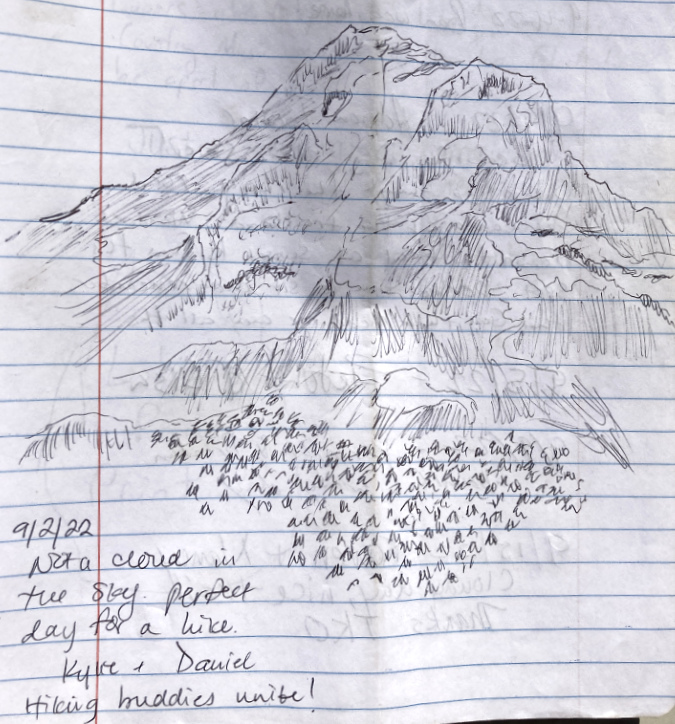 9/2/22
Not a cloud in
the sky. perfect
day for a hike.
Kylie + Daniel
Hiking buddies unite!